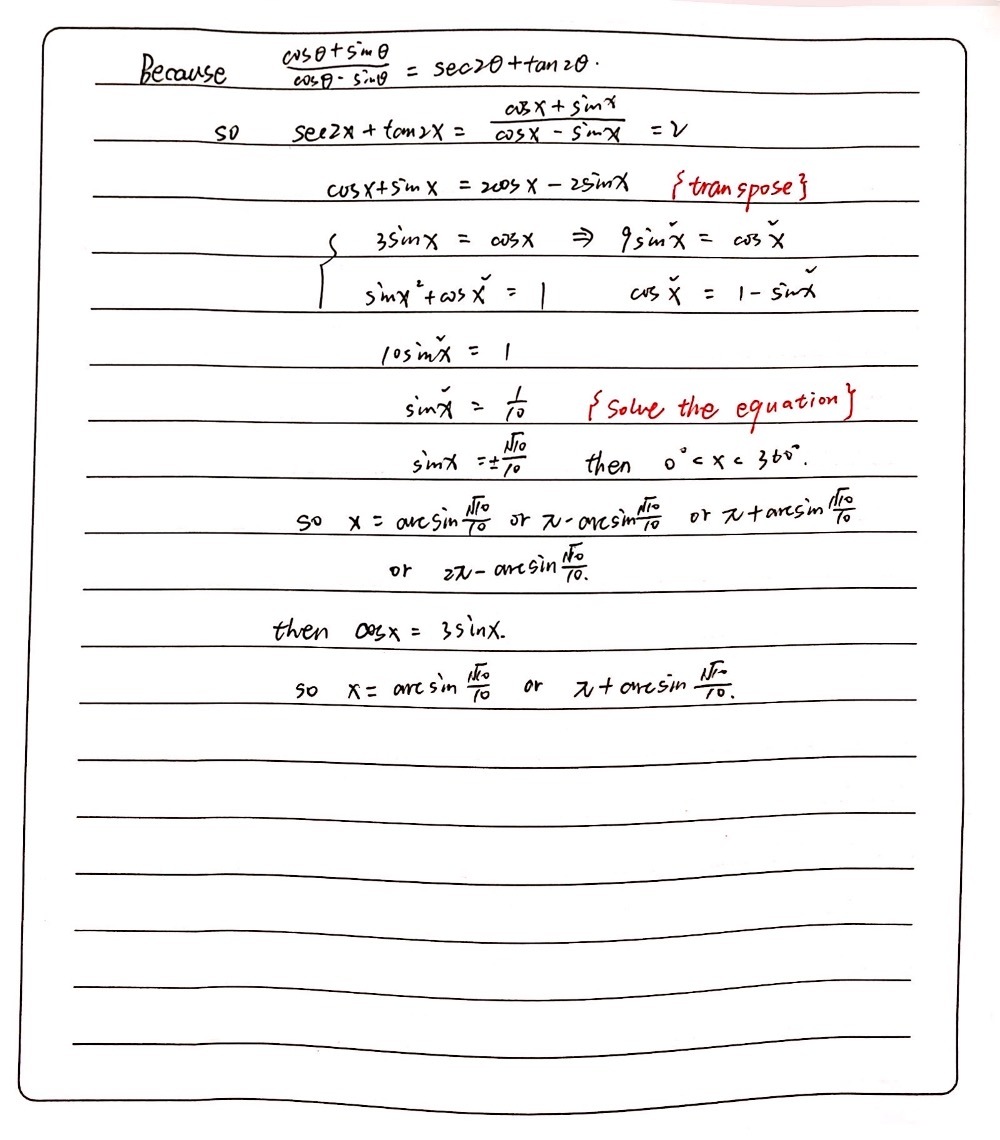 Because (cosθ+sinθ)/(cosθ-sinθ) = sec2θ+tan2θ.
so sec2x+tan2x = (cosx+sinx)/(cosx-sinx) = 2
cosx+sinx = 2cosx-2sinx {transpose}
3sinx = cosx ⇒ 9sin²x = cos²x
sinx²+cosx² = 1 cos²x = 1-sin²x
10sin²x = 1
sin²x = 1/10 {solve the equation}
sinx = ±√10/10 then 0°<x<360°.
so x = arcsin √10/10 or π-arcsin √10/10 or π+arcsin √10/10
or 2π-arcsin √10/10.
then cosx = 3sinx.
so x = arcsin √10/10 or π+arcsin √10/10.